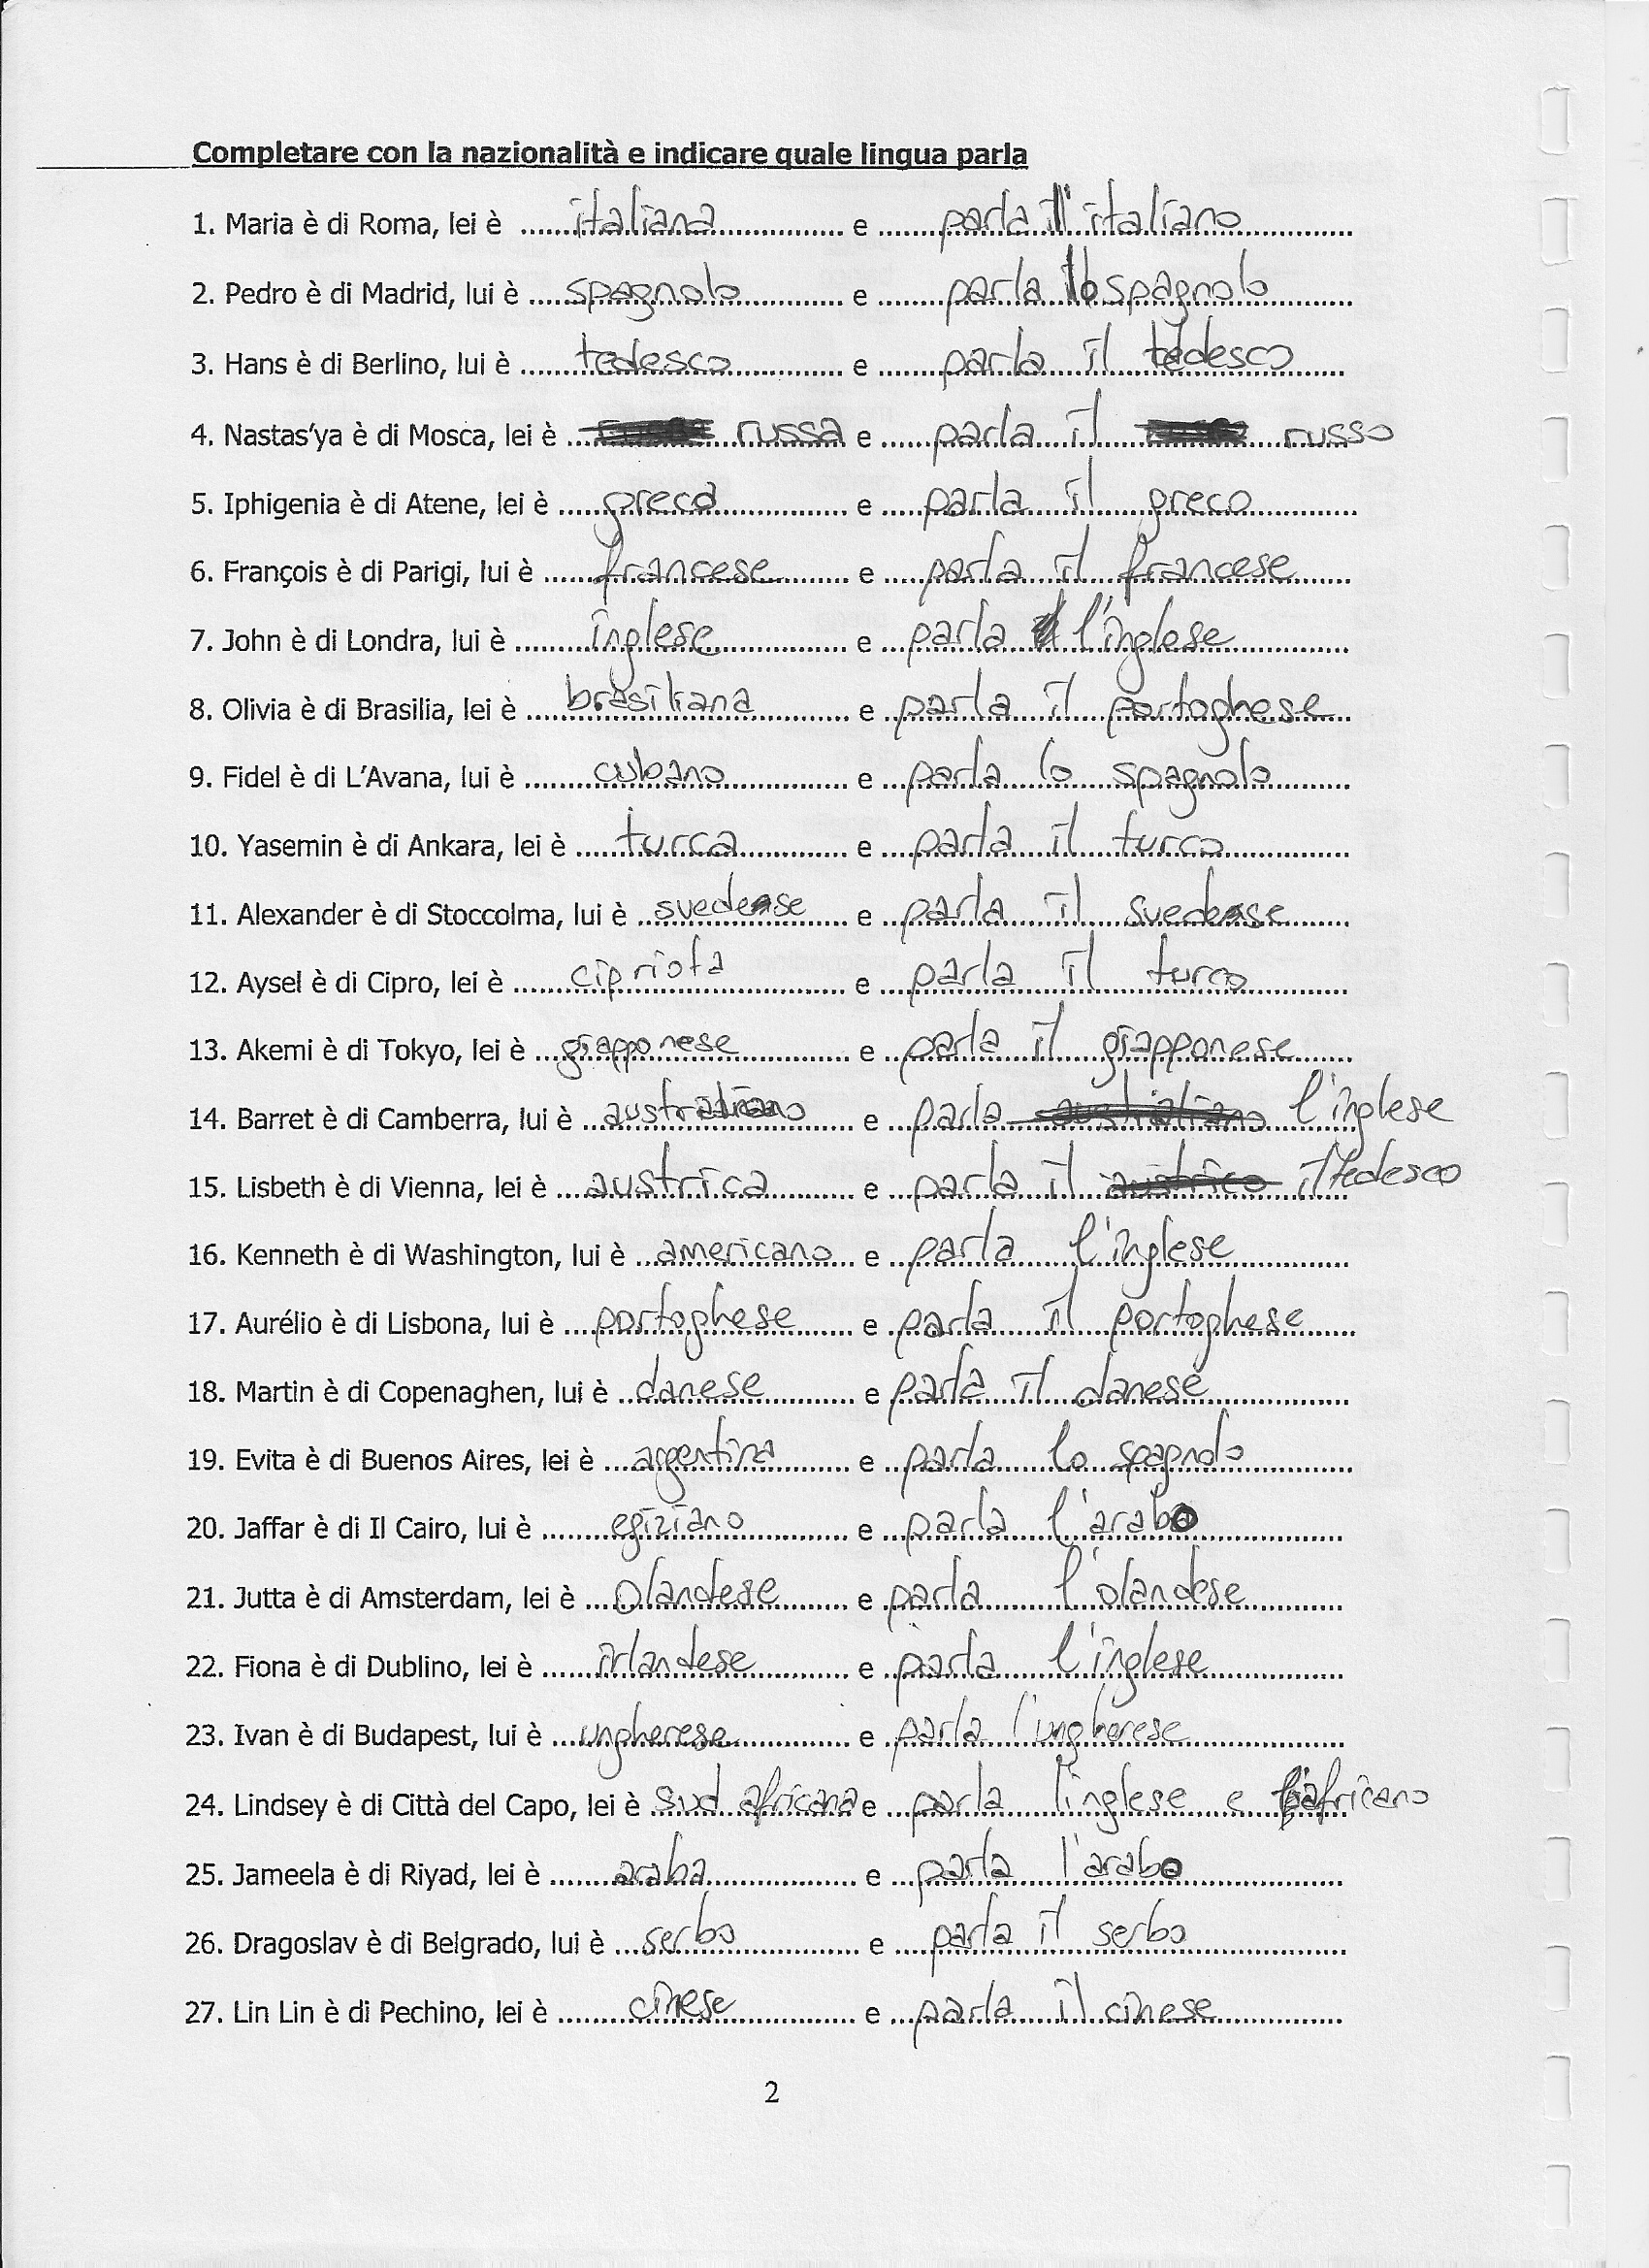 Completare con la nazionalità e indicare quale lingua parla
1. Maria è di Roma, lei è ......italiana............... e ........parla l'italiano...........
2. Pedro è di Madrid, lui è ....spagnolo............ e ........parla lo spagnolo........
3. Hans è di Berlino, lui è .......tedesco............. e ........parla il tedesco......
4. Nastas'ya è di Mosca, lei è ... russa e ......parla il russo
5. Iphigenia è di Atene, lei è .....greca............... e .....parla il greco.............
6. François è di Parigi, lui è ......francese......... e .....parla il francese.......
7. John è di Londra, lui è .........inglese............... e ...parla l'inglese..............
8. Olivia è di Brasilia, lei è ....brasiliana............ e ..parla il portoghese...
9. Fidel è di L'Avana, lui è ........cubano............... e ...parla lo spagnolo.........
10. Yasemin è di Ankara, lei è .....turca............... e ...parla il turco...............
11. Alexander è di Stoccolma, lui è ..svedese..... e ...parla il svedese........
12. Aysel è di Cipro, lei è .......cipriota............... e ...parla il turco............
13. Akemi è di Tokyo, lei è ...giapponese............ e ...parla il giapponese.......
14. Barret è di Camberra, lui è ...australiano...... e ...parla australiano l'inglese
15. Lisbeth è di Vienna, lei è ...austrica.......... e ...parla il austrico il tedesco
16. Kenneth è di Washington, lui è ...americano... e ...parla l'inglese..............
17. Aurélio è di Lisbona, lui è ....portoghese....... e .parla il portoghese......
18. Martin è di Copenaghen, lui è ..danese............ e parla il danese...............
19. Evita è di Buenos Aires, lei è ...argentina......... e ...parla lo spagnolo............
20. Jaffar è di Il Cairo, lui è .........egiziano............ e ...parla l'arabo..................
21. Jutta è di Amsterdam, lei è ....olandese......... e .parla l'olandese.............
22. Fiona è di Dublino, lei è ......irlandese............ e ..parla l'inglese................
23. Ivan è di Budapest, lui è ...ungherese............ e ..parla l'ungherese..................
24. Lindsey è di Città del Capo, lei è sud africana e ..parla l'inglese e l'africano
25. Jameela è di Riyad, lei è ........araba.................. e ...parla l'arabo..................
26. Dragoslav è di Belgrado, lui è ...serbo............... e ....parla il serbo..................
27. Lin Lin è di Pechino, lei è .........cinese............... e ...parla il cinese...............
2